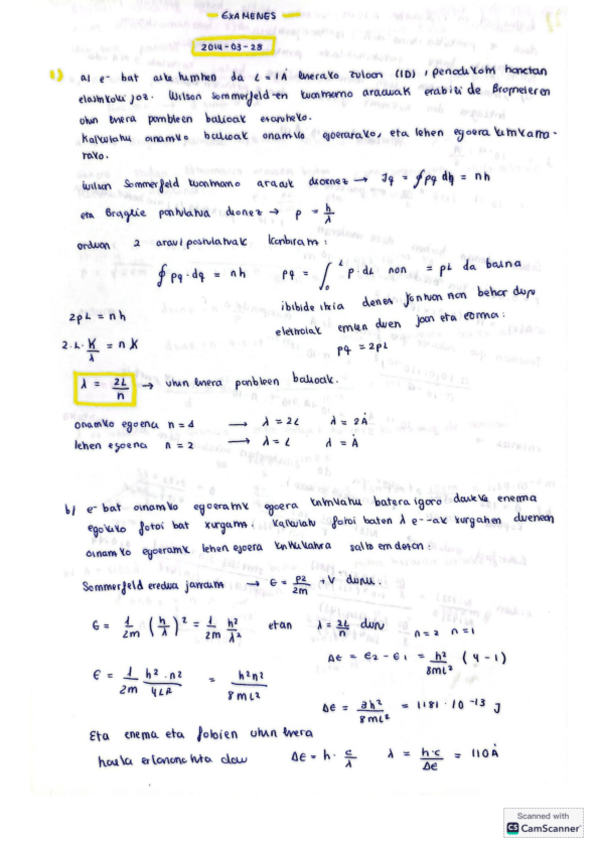 - EXAMENES -
2014-03-28
1) a) e- bat aske higitzen da L = 1Å luzerako zuloan (1D), periodikoki hormetan
elastikoki joz. Wilson Sommerfeld-en kuantizazio arauak erabiliz de Broglieren
uhin luzera posibleen balioak
Kalkulatu oinarrizko balioak oinarrizko egoerarako, eta lehen egoera kitzikatua-
rako.
Wilson Sommerfeld arauak dionez → Jq = ∮ pq dq = nh
eta Broglie postulatua dionez → p = h/λ
orduan 2 arau/postulatuak konbinatuz:
∮ pq · dq = nh pq = ∫₀ᴸ p · dL non = pL da baina
ibilbide itxia denez kontuan behar dugu
elektroiak duen joan eta etorria:
pq = 2pL
2pL = nh
2 · L · h/λ = n h
λ = 2L/n → uhin luzera posibleen balioak.
oinarrizko egoera n = 1 → λ = 2L λ = 2Å
lehen egoera n = 2 → λ = L λ = Å
b) e- bat oinarrizko egoeratik egoera kitzikatu batera igaro daiteke energia
egokiko fotoi bat xurgatuz. Kalkulatu fotoi baten λ e--ak xurgatzen duenean
oinarrizko egoeratik lehen egoera kitzikatura salto
Sommerfeld eredua jarraituz → E = p2/2m + V dugu:
E = 1/2m (h/λ)² = 1/2m h²/λ² λ = 2L/n dugu n = 2 n = 1
ΔE = E2 - E1 = h²/8mL² (4 - 1)
E = 1/2m h² · n²/4L² = h²n²/8mL²
ΔE = 3h²/8mL² = 1181 · 10⁻¹³ J
Eta energia eta fotoien uhin luzera
honela erlazionatuta daude ΔE = h · c/λ λ = h·c/ΔE = 110Å
Scanned with
CS CamScanner